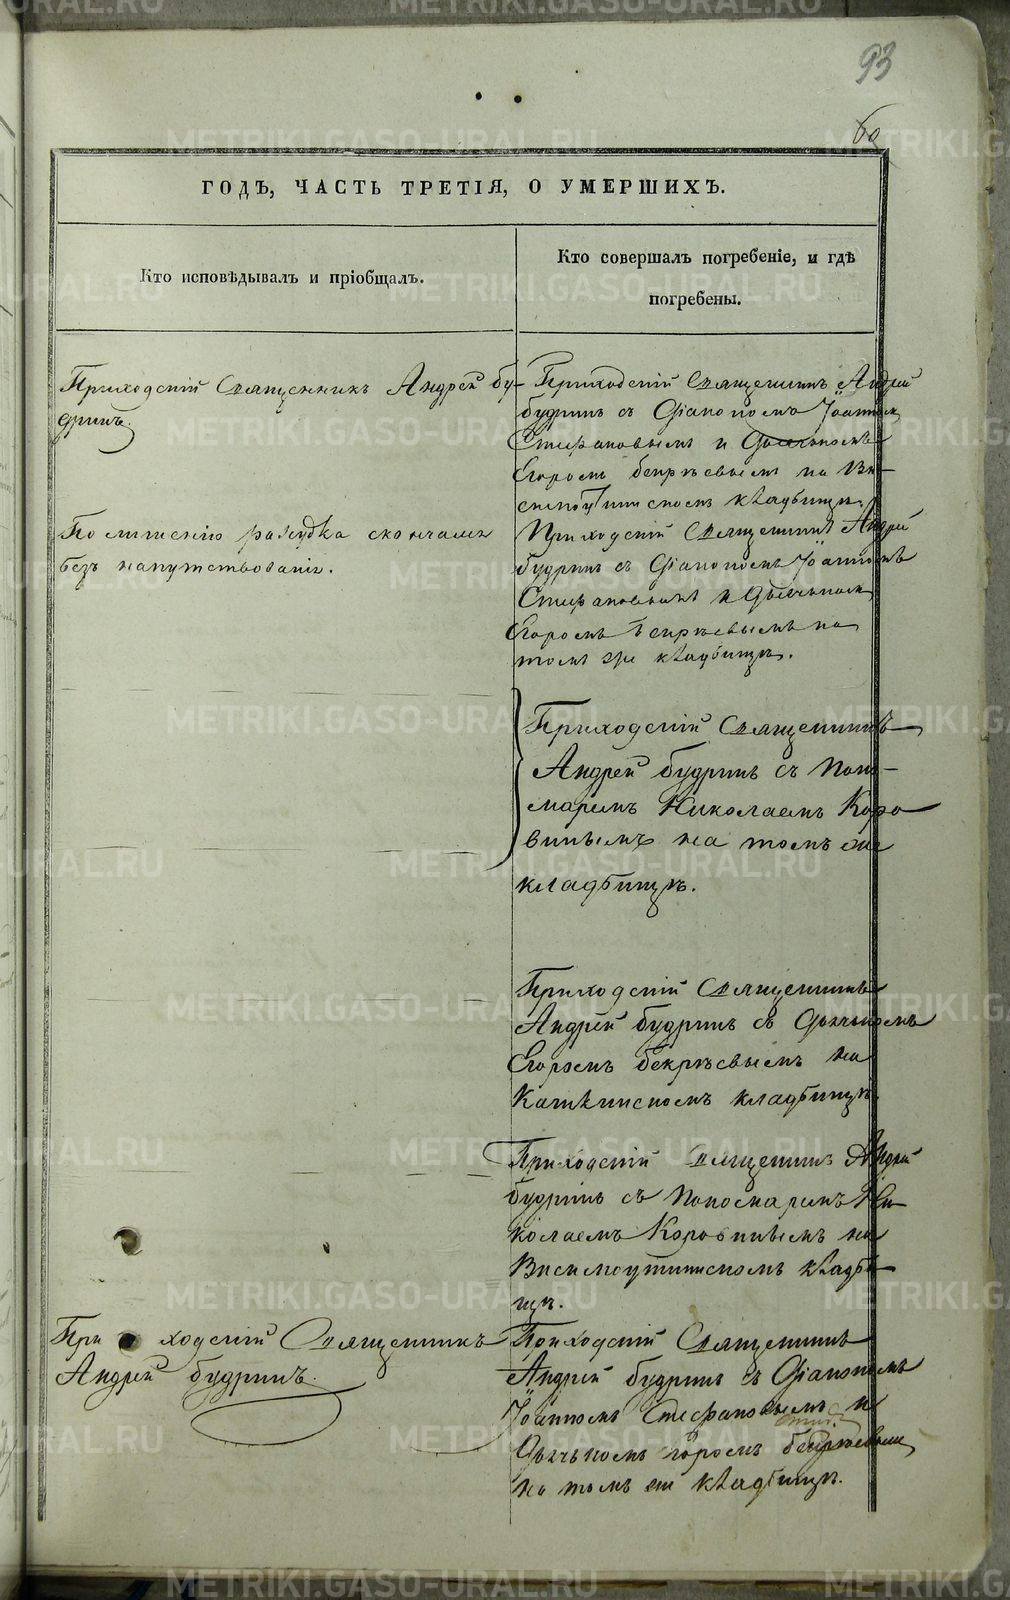 93
60
ГОДЪ, ЧАСТЬ ТРЕТІЯ, О УМЕРШИХЪ.
Кто исповѣдывалъ и пріобщалъ.
Кто совершалъ погребеніе, и гдѣ
погребены.
Приходскій Священникъ Андрей Бу-
дринъ.
Приходскій Священникъ Андрей
Будринъ съ Діакономъ Іоанномъ
Стефановымъ и Дьячькомъ
Егоромъ Бекрѣевымъ на Ви-
симоуткинскомъ кладбищѣ.
По лишенію разсудка скончался
безъ напутствованія.
Приходскій Священникъ Андрей
Будринъ съ Діакономъ Іоанномъ
Стефановымъ и Дьячькомъ
Егоромъ Бекрѣевымъ на
томъ же кладбищѣ.
Приходскій Священникъ
Андрей Будринъ съ Поно-
маремъ Николаемъ Коро
винымъ на томъ же
кладбищѣ.
Приходскій Священникъ
Андрей Будринъ съ Дьячькомъ
Егоромъ Бекрѣевымъ на
кладбищѣ
Приходскій Священникъ Андрей
Будринъ съ Пономаремъ Ни
колаемъ Коровинымъ на
Висимоуткинскомъ кладби
щѣ.
Приходскій Священникъ
Андрей Будринъ.
Приходскій Священникъ
Андрей Будринъ съ Діакономъ
Іоанномъ Стефановымъ и
Дьячькомъ Егоромъ Бекрѣевымъ
на томъ же кладбищѣ.
METRIKI.GASO-URAL.RU